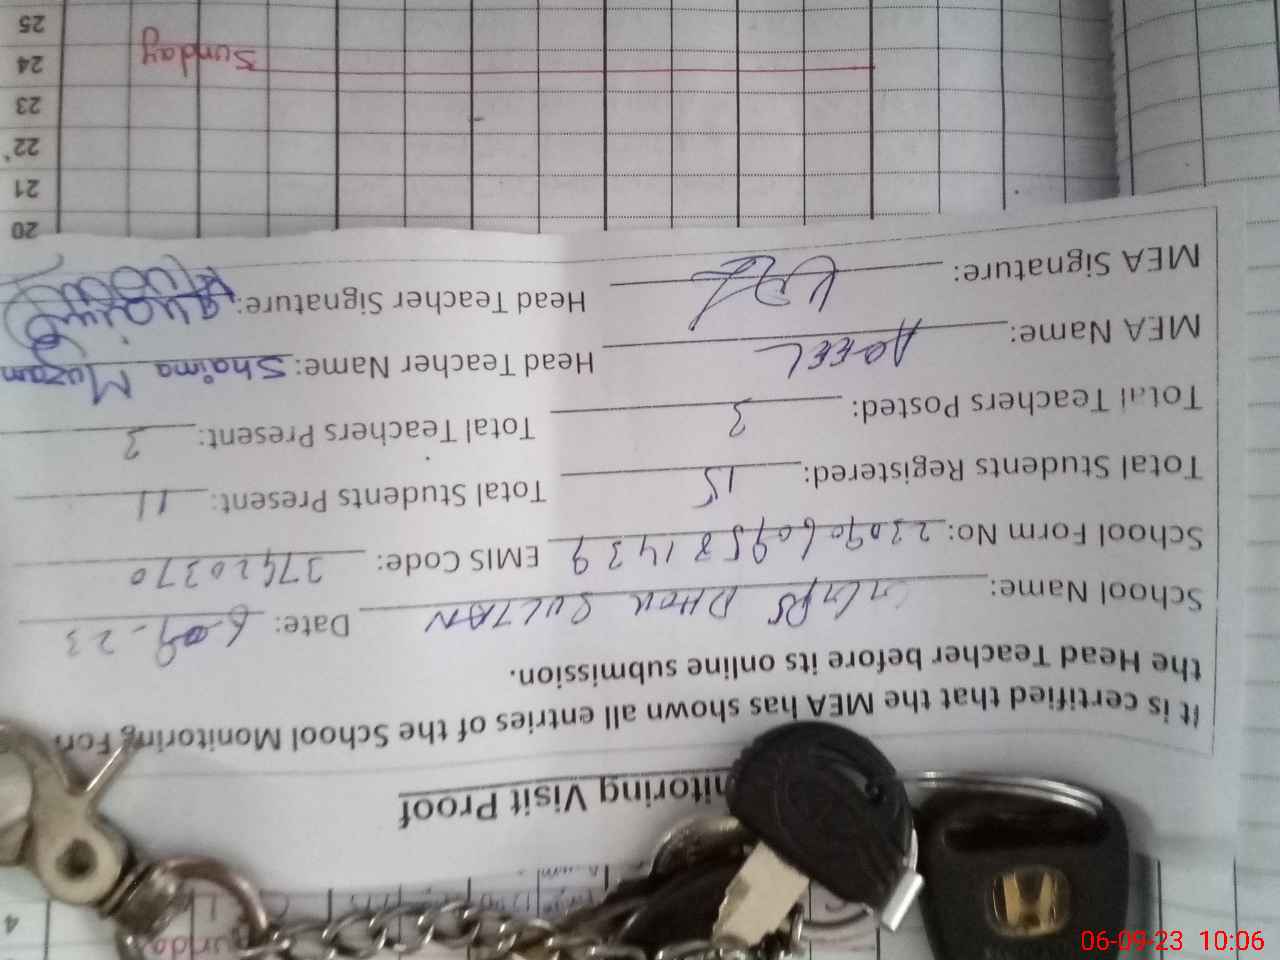 nitoring Visit Proof
It is certified that the MEA has shown all entries of the School Monitoring For
the Head Teacher before its online submission.
School Name: GGPS DHOK SULTAN Date: 6-09-23
School Form No: 23090609581439 EMIS Code: 37420370
Total Students Registered: 15 Total Students Present: 11
Total Teachers Posted: 3 Total Teachers Present: 3
MEA Name: AQEEL Head Teacher Name: Shaima Muzam
MEA Signature: Head Teacher Signature:
20
21
22
23
24 Sunday
25
4
06-09-23 10:06